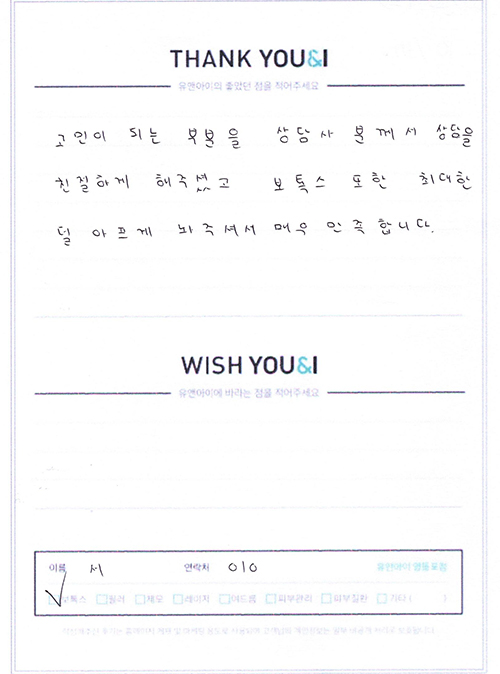 THANK YOU&I
유앤아이의 좋았던 점을 적어주세요
고인이 되는 부분을 상담사 분께서 상담을
친절하게 해주셨고 보톡스 또한 최대한
덜 아프게 놔주셔서 매우 만족합니다.
WISH YOU&I
유앤아이에 바라는 점을 적어주세요
이름 서 연락처 010 유앤아이 영등포점
보톡스 필러 제모 레이저 여드름 피부관리 피부질환 기타 ( )